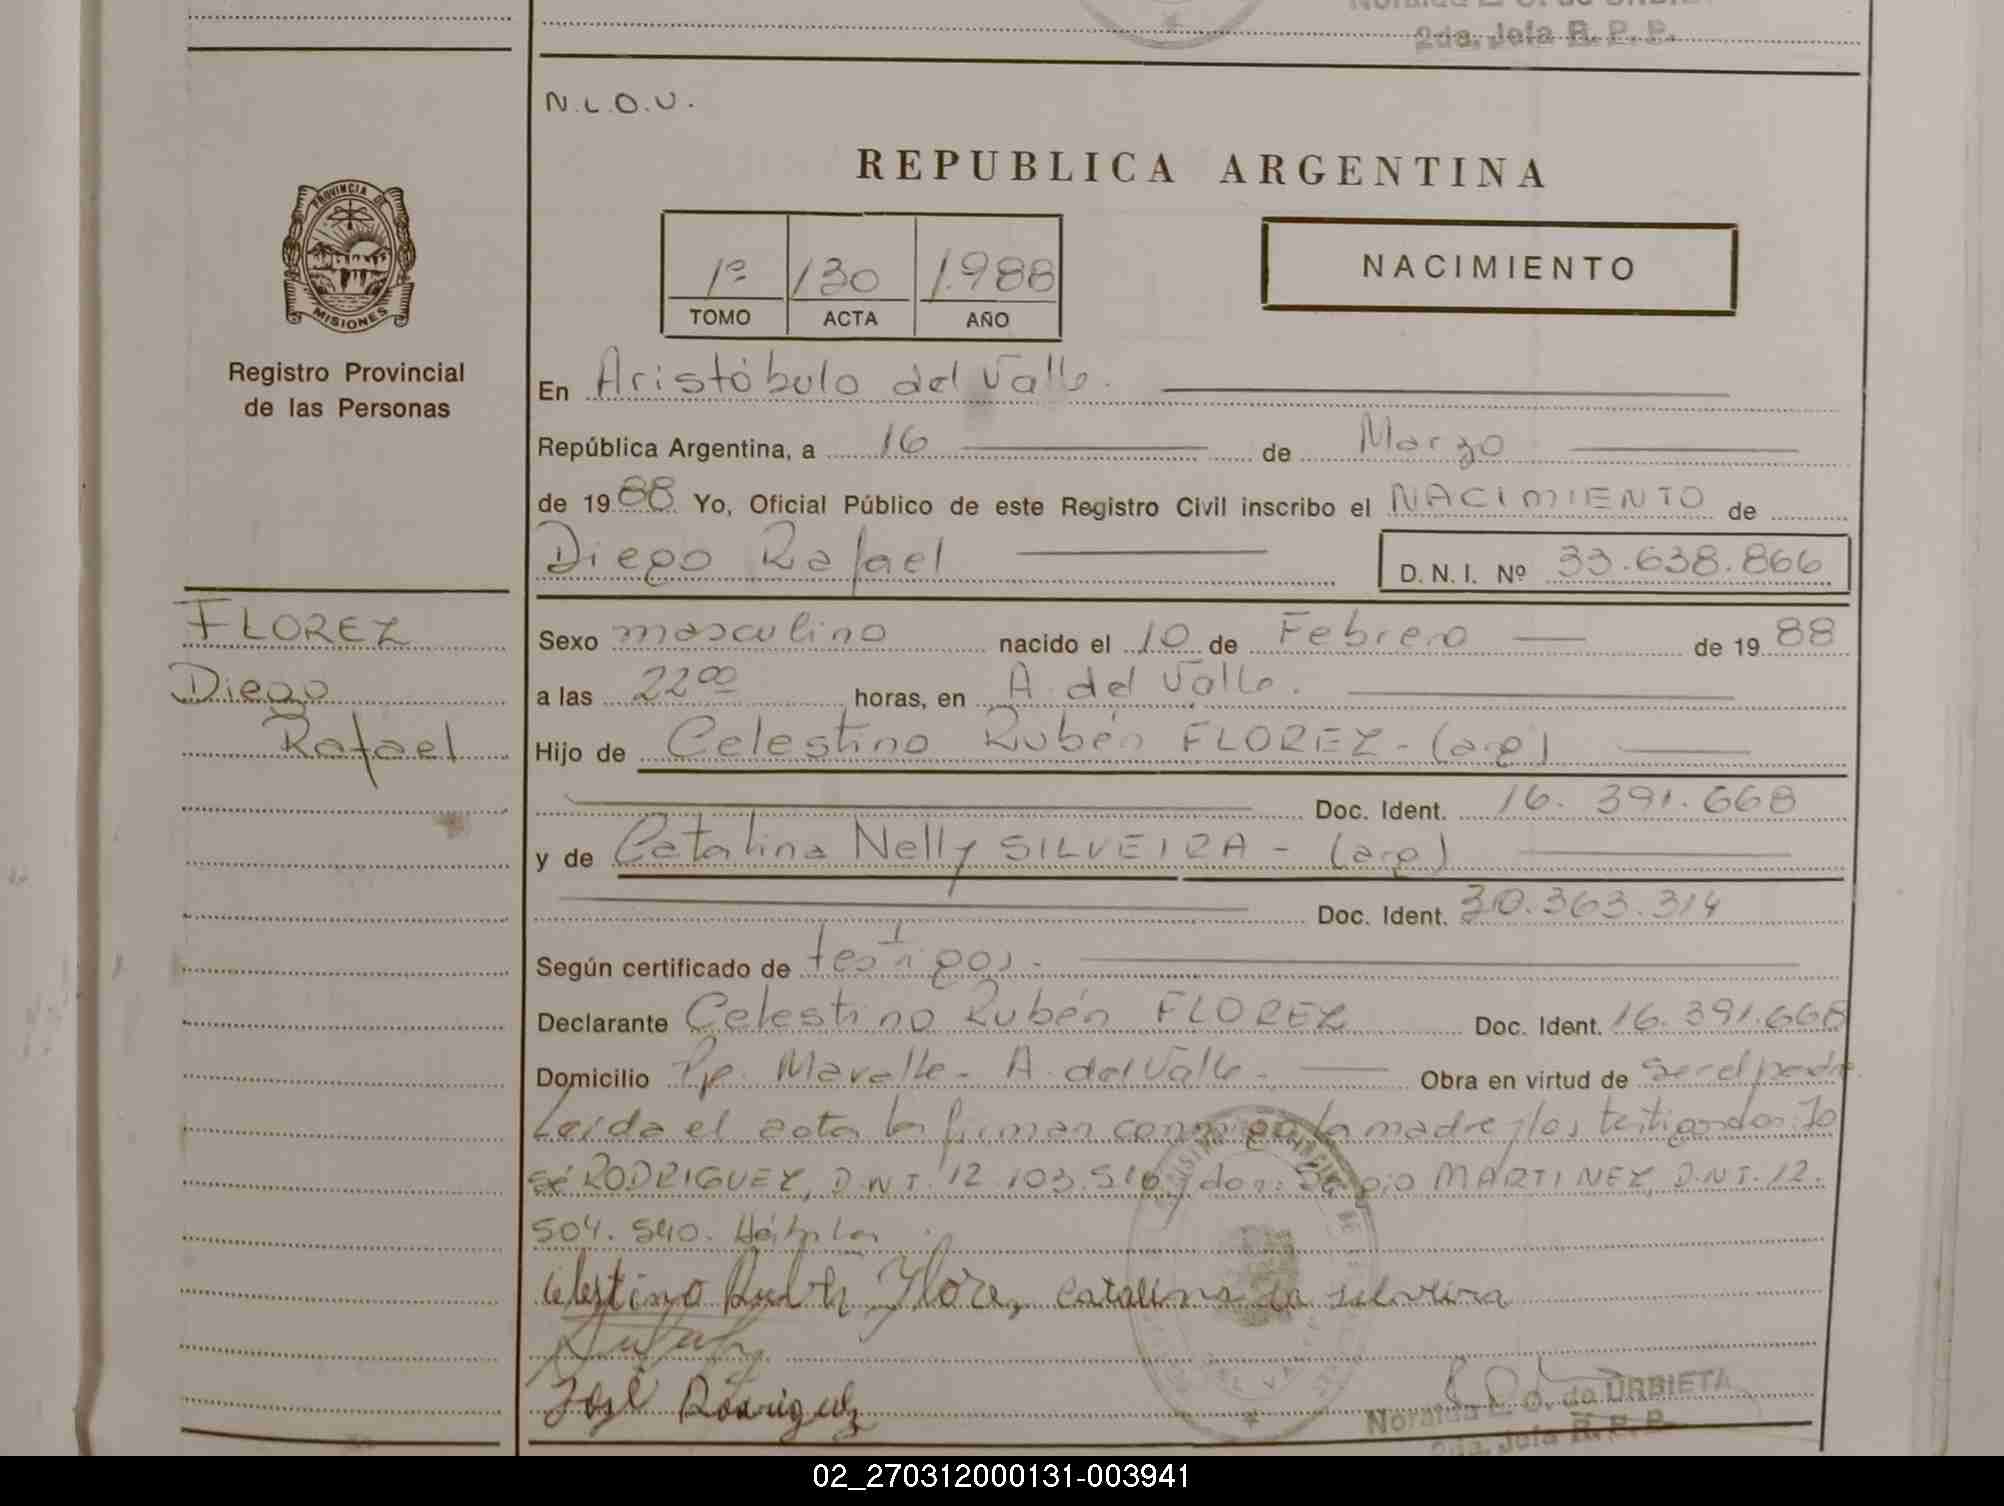 2da. Jefa R. P. P.
N.L.O.U.
REPUBLICA ARGENTINA
PROVINCIA DE
MISIONES
Registro Provincial
de las Personas
1º 130 1.988
TOMO ACTA AÑO
NACIMIENTO
En Aristóbulo del Valle.
República Argentina, a 16 de Marzo
de 1988 Yo, Oficial Público de este Registro Civil inscribo el NACIMIENTO de
Diego Rafael D. N. I. Nº 33.638.866
FLOREZ
Diego
Rafael
Sexo masculino nacido el 10 de Febrero de 1988
a las 22 00 horas, en A. del Valle.
Hijo de Celestino Rubén FLOREZ - (arg)
Doc. Ident. 16. 391. 668
y de Catalina Nelly SILVEIRA - (arg)
Doc. Ident. 30.363.314
Según certificado de testigos.
Declarante Celestino Rubén FLOREZ Doc. Ident. 16.391.668
Domicilio Pje. Mavalle - A. del Valle - Obra en virtud de ser el padre
Leída el acta la firman conmigo la madre y los testigos don: Jo
sé RODRIGUEZ, D.N.I. 12.103.516 y don: Sergio MARTINEZ, D.N.I. 12.
504. 540. Hábiles
Celestino Rubén Florez Catalina silveira
José Rodriguez
Noralda E. O. de URBIETA
2da. Jefa R. P. P.
02_270312000131-003941